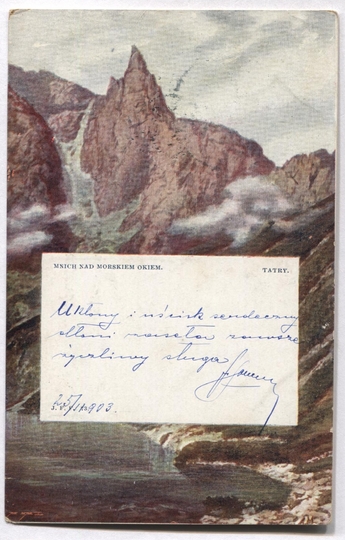 MNICH NAD MORSKIEM OKIEM. TATRY.
Ukłony i uścisk serdeczny
dłoni zawsze
życzliwy sługa
903.